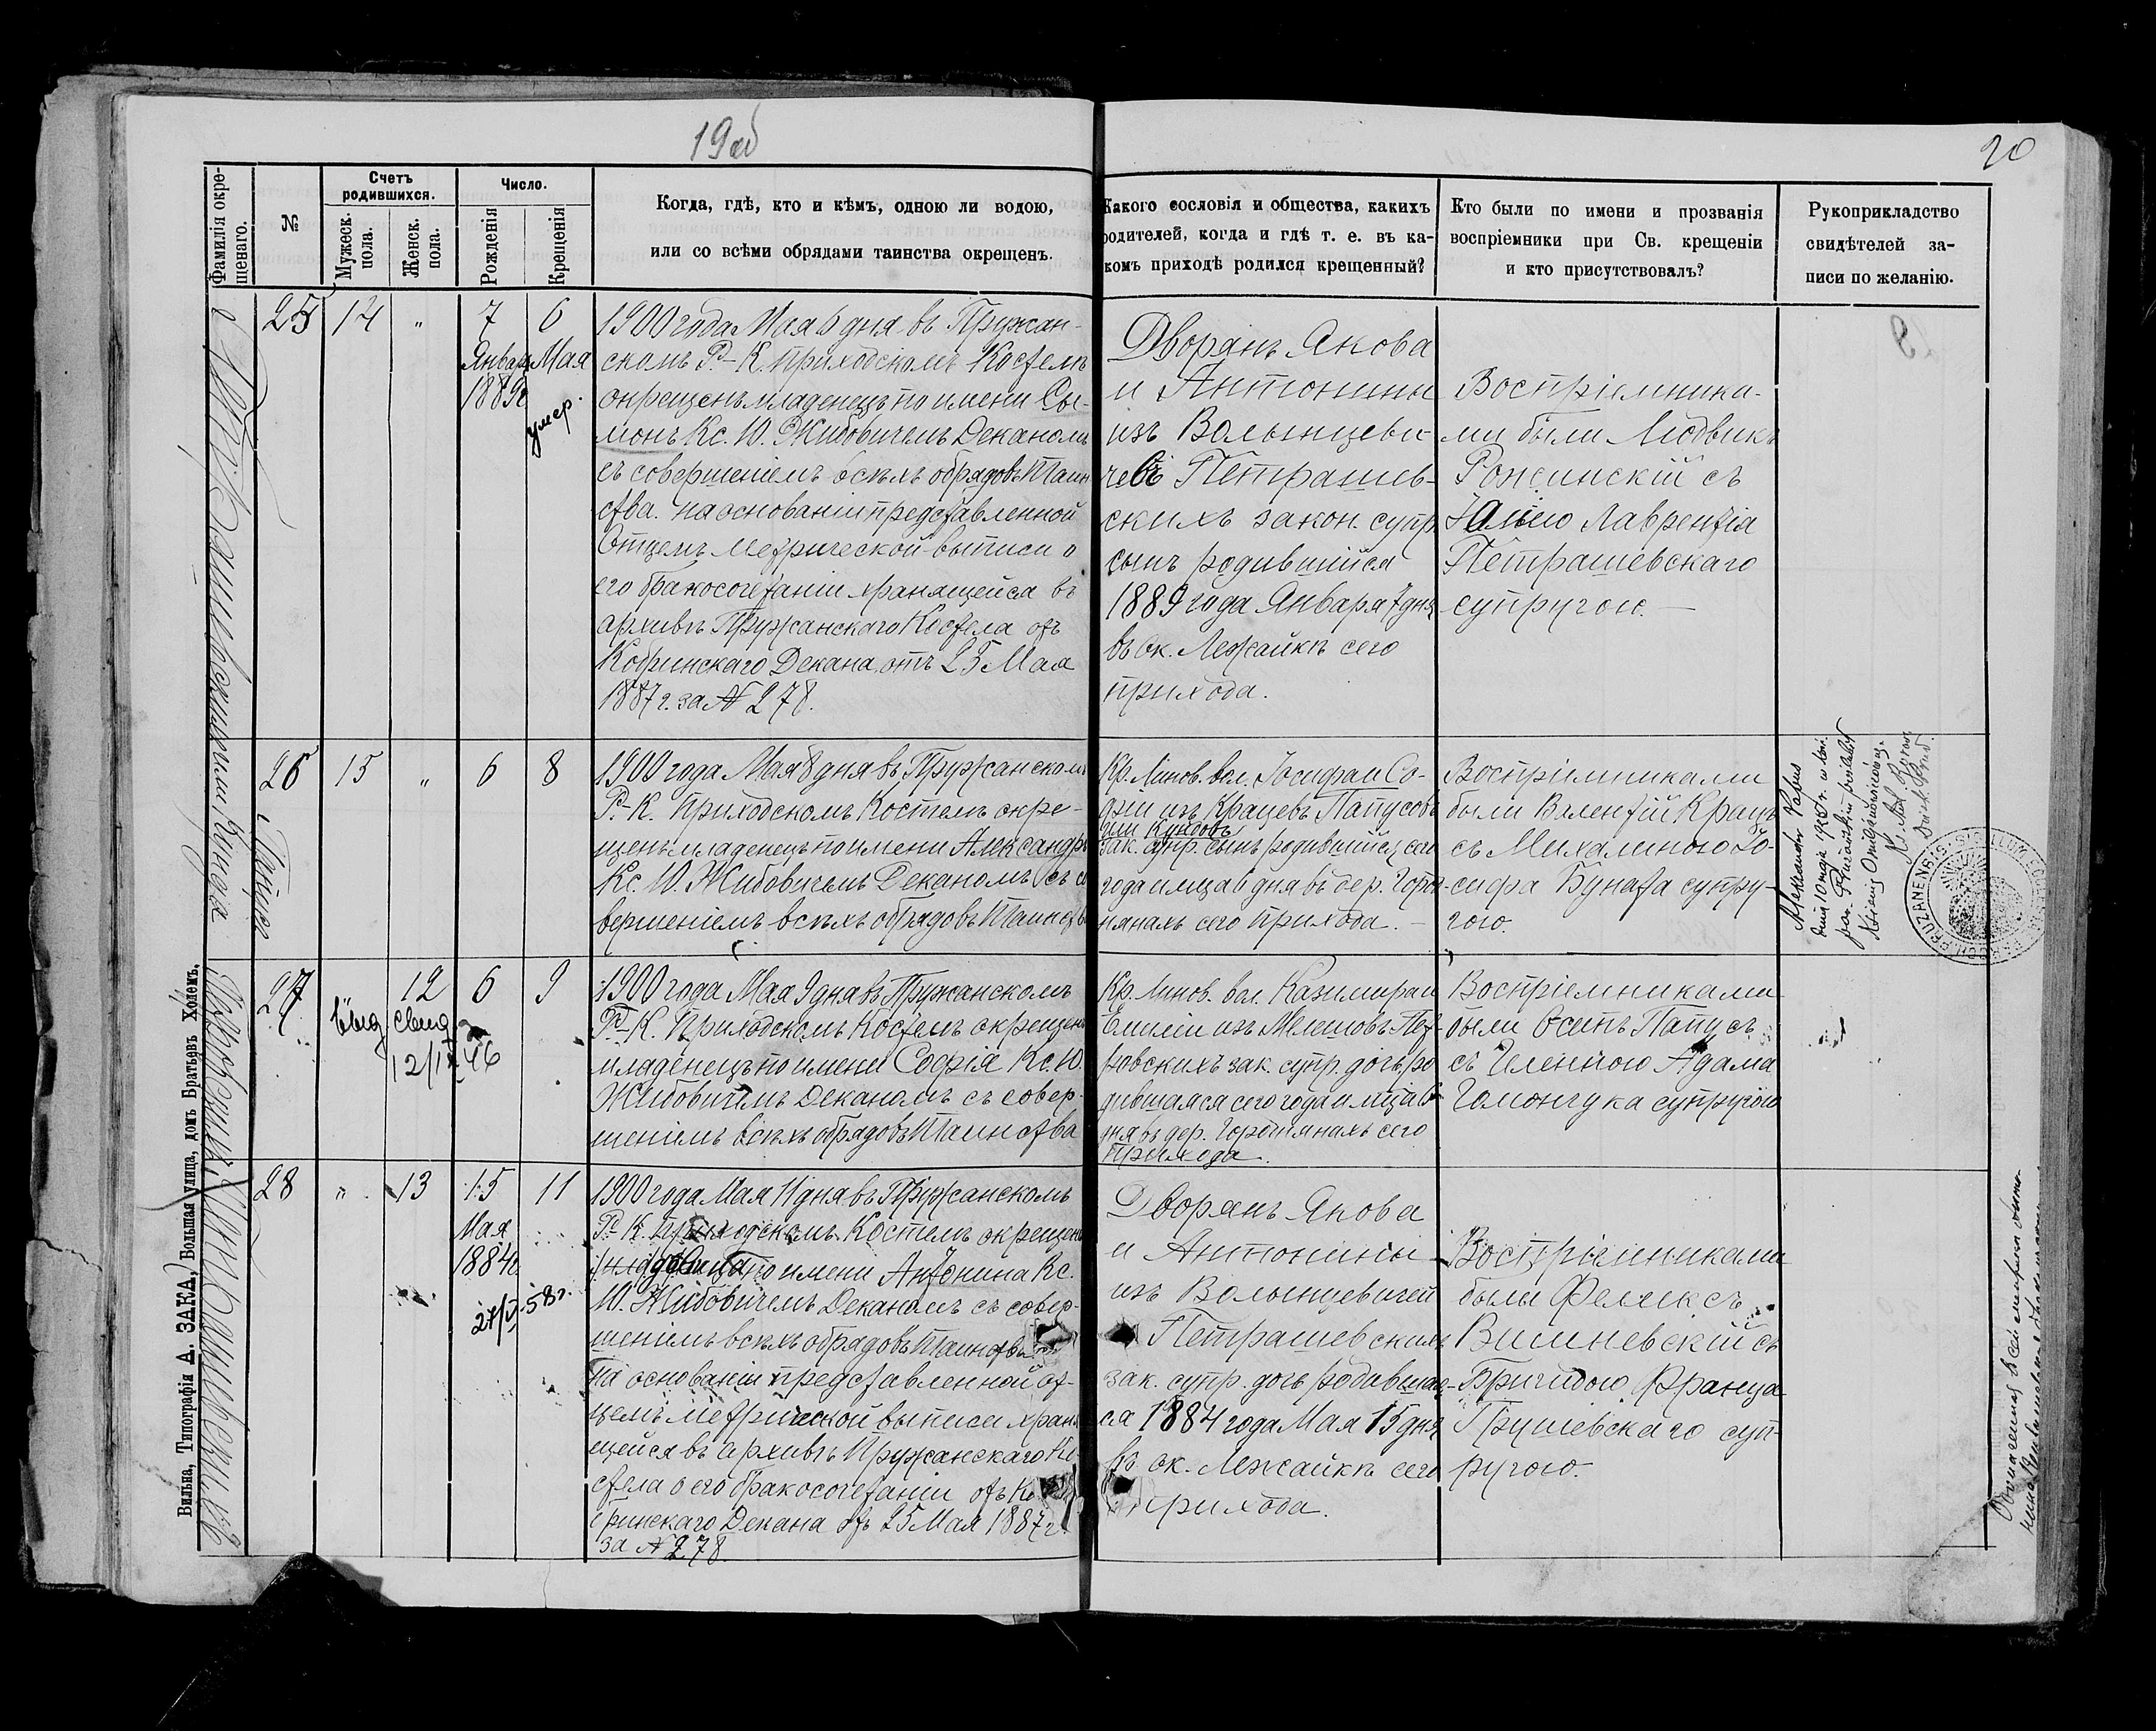 19об
20
Фамилія окре-
шенаго.
№
Счетъ
родившихся.
Мужеск.
пола.
Женск.
пола.
Число.
Рожденія
Крещенія
Когда, гдѣ, кто и кѣмъ, одною ли водою,
или со всѣми обрядами таинства окрещенъ.
Какого сословія и общества, какихъ
родителей, когда и гдѣ т. е. въ ка-
комъ приходѣ родился крещенный?
Кто были по имени и прозванія
воспріемники при Св. крещеніи
и кто присутствовалъ?
Рукоприкладство
свидѣтелей за-
писи по желанію.
25
14
"
7
Января
1889г
6
Мая
умер.
1900 года Мая 6 дня въ Пружан-
скомъ Р.-К. приходскомъ Костелѣ
окрещенъ младенецъ по имени Сы-
монъ Кс. Ю. Жибовичемъ Деканомъ
съ совершеніемъ всѣхъ обрядовъ Таин
ства. на основаніи представленной
Отцемъ метрической выписи о
его бракосочетаніи хранящейся въ
архивѣ Пружанскаго Костела отъ
Кобринскаго Декана отъ 25 Мая
1887 г. за № 278.
Дворянъ Якова
и Антонины
изъ Волынцеви-
чевъ Петрашев-
скихъ закон. супр
сынъ родившійся
1889 года Января 7 дня
въ ок. Лежайкѣ сего
прихода.
Воспріемника-
ми были Людвикъ
Рожинскій съ
Лаврентія
Петрашевскаго
супругою.
26
Папусъ
15
"
6
8
1900 года Мая 8 дня въ Пружанскомъ
Р.-К. Приходскомъ Костелѣ окре-
щенъ младенецъ по имени Александръ
Кс. Ю. Жибовичемъ Деканомъ съ со
вершеніемъ всѣхъ обрядовъ Таинства
Кр. Линов. вол. Іосифа и Со-
фіи изъ Крацевъ Папусовъ
зак. супр. сынъ родившійся сего
года и мца 6 дня въ дер. Горо-
нянахъ сего прихода.
Воспріемниками
были Валентій Крацъ
съ Михалиною Іо-
сифа Буната супру-
гою.
Aleksander Papus
dnia 10 maja
SIGILLUM
PRUZANENSIS
27
12
6
9
12/IX 46
1900 года Мая 9 дня въ Пружанскомъ
Р.-К. Приходскомъ Костелѣ окрещенъ
младенецъ по имени Софія Кс. Ю.
Жибовичемъ Деканомъ съ совер-
шеніемъ всѣхъ обрядовъ Таинства
Кр. Линов. вол. Казимира и
Емиліи изъ Мелешовъ Пет-
ровскихъ зак. супр. дочь ро
дившаяся сего года и мца 6
дня въ дер. сего
прихода.
Воспріемниками
были Осипъ Папусъ
съ Еленою Адама
Гомончука супругою
28
"
13
15
Мая
1884г
11
27/V 58 г.
1900 года Мая 11 дня въ Пружанскомъ
Р.-К. приходскомъ Костелѣ окрещенъ
младеница по имени Антонина Кс.
Ю. Жибовичемъ Деканомъ съ совер-
шеніемъ всѣхъ обрядовъ Таинства
на основаніи представленной от-
цемъ метрической выписи храня
щейся въ архивѣ Пружанскаго Ко
стела о его бракосочетаніи отъ Ко
бринскаго Декана отъ 25 Мая 1887 г
за № 278
Дворянъ Якова
и Антонины
изъ Волынцевичей
Петрашевскихъ
зак. супр. дочь родившая-
ся 1884 года Мая 15 дня
въ ок. Лежайкѣ сего
прихода.
Воспріемниками
были Феликсъ
Вишневскій съ
Бригидою Франца
Грушевскаго суп-
ругою.
Вильна, Типографія А. ЗАКА, Большая улица, домъ Братьевъ Холемъ.